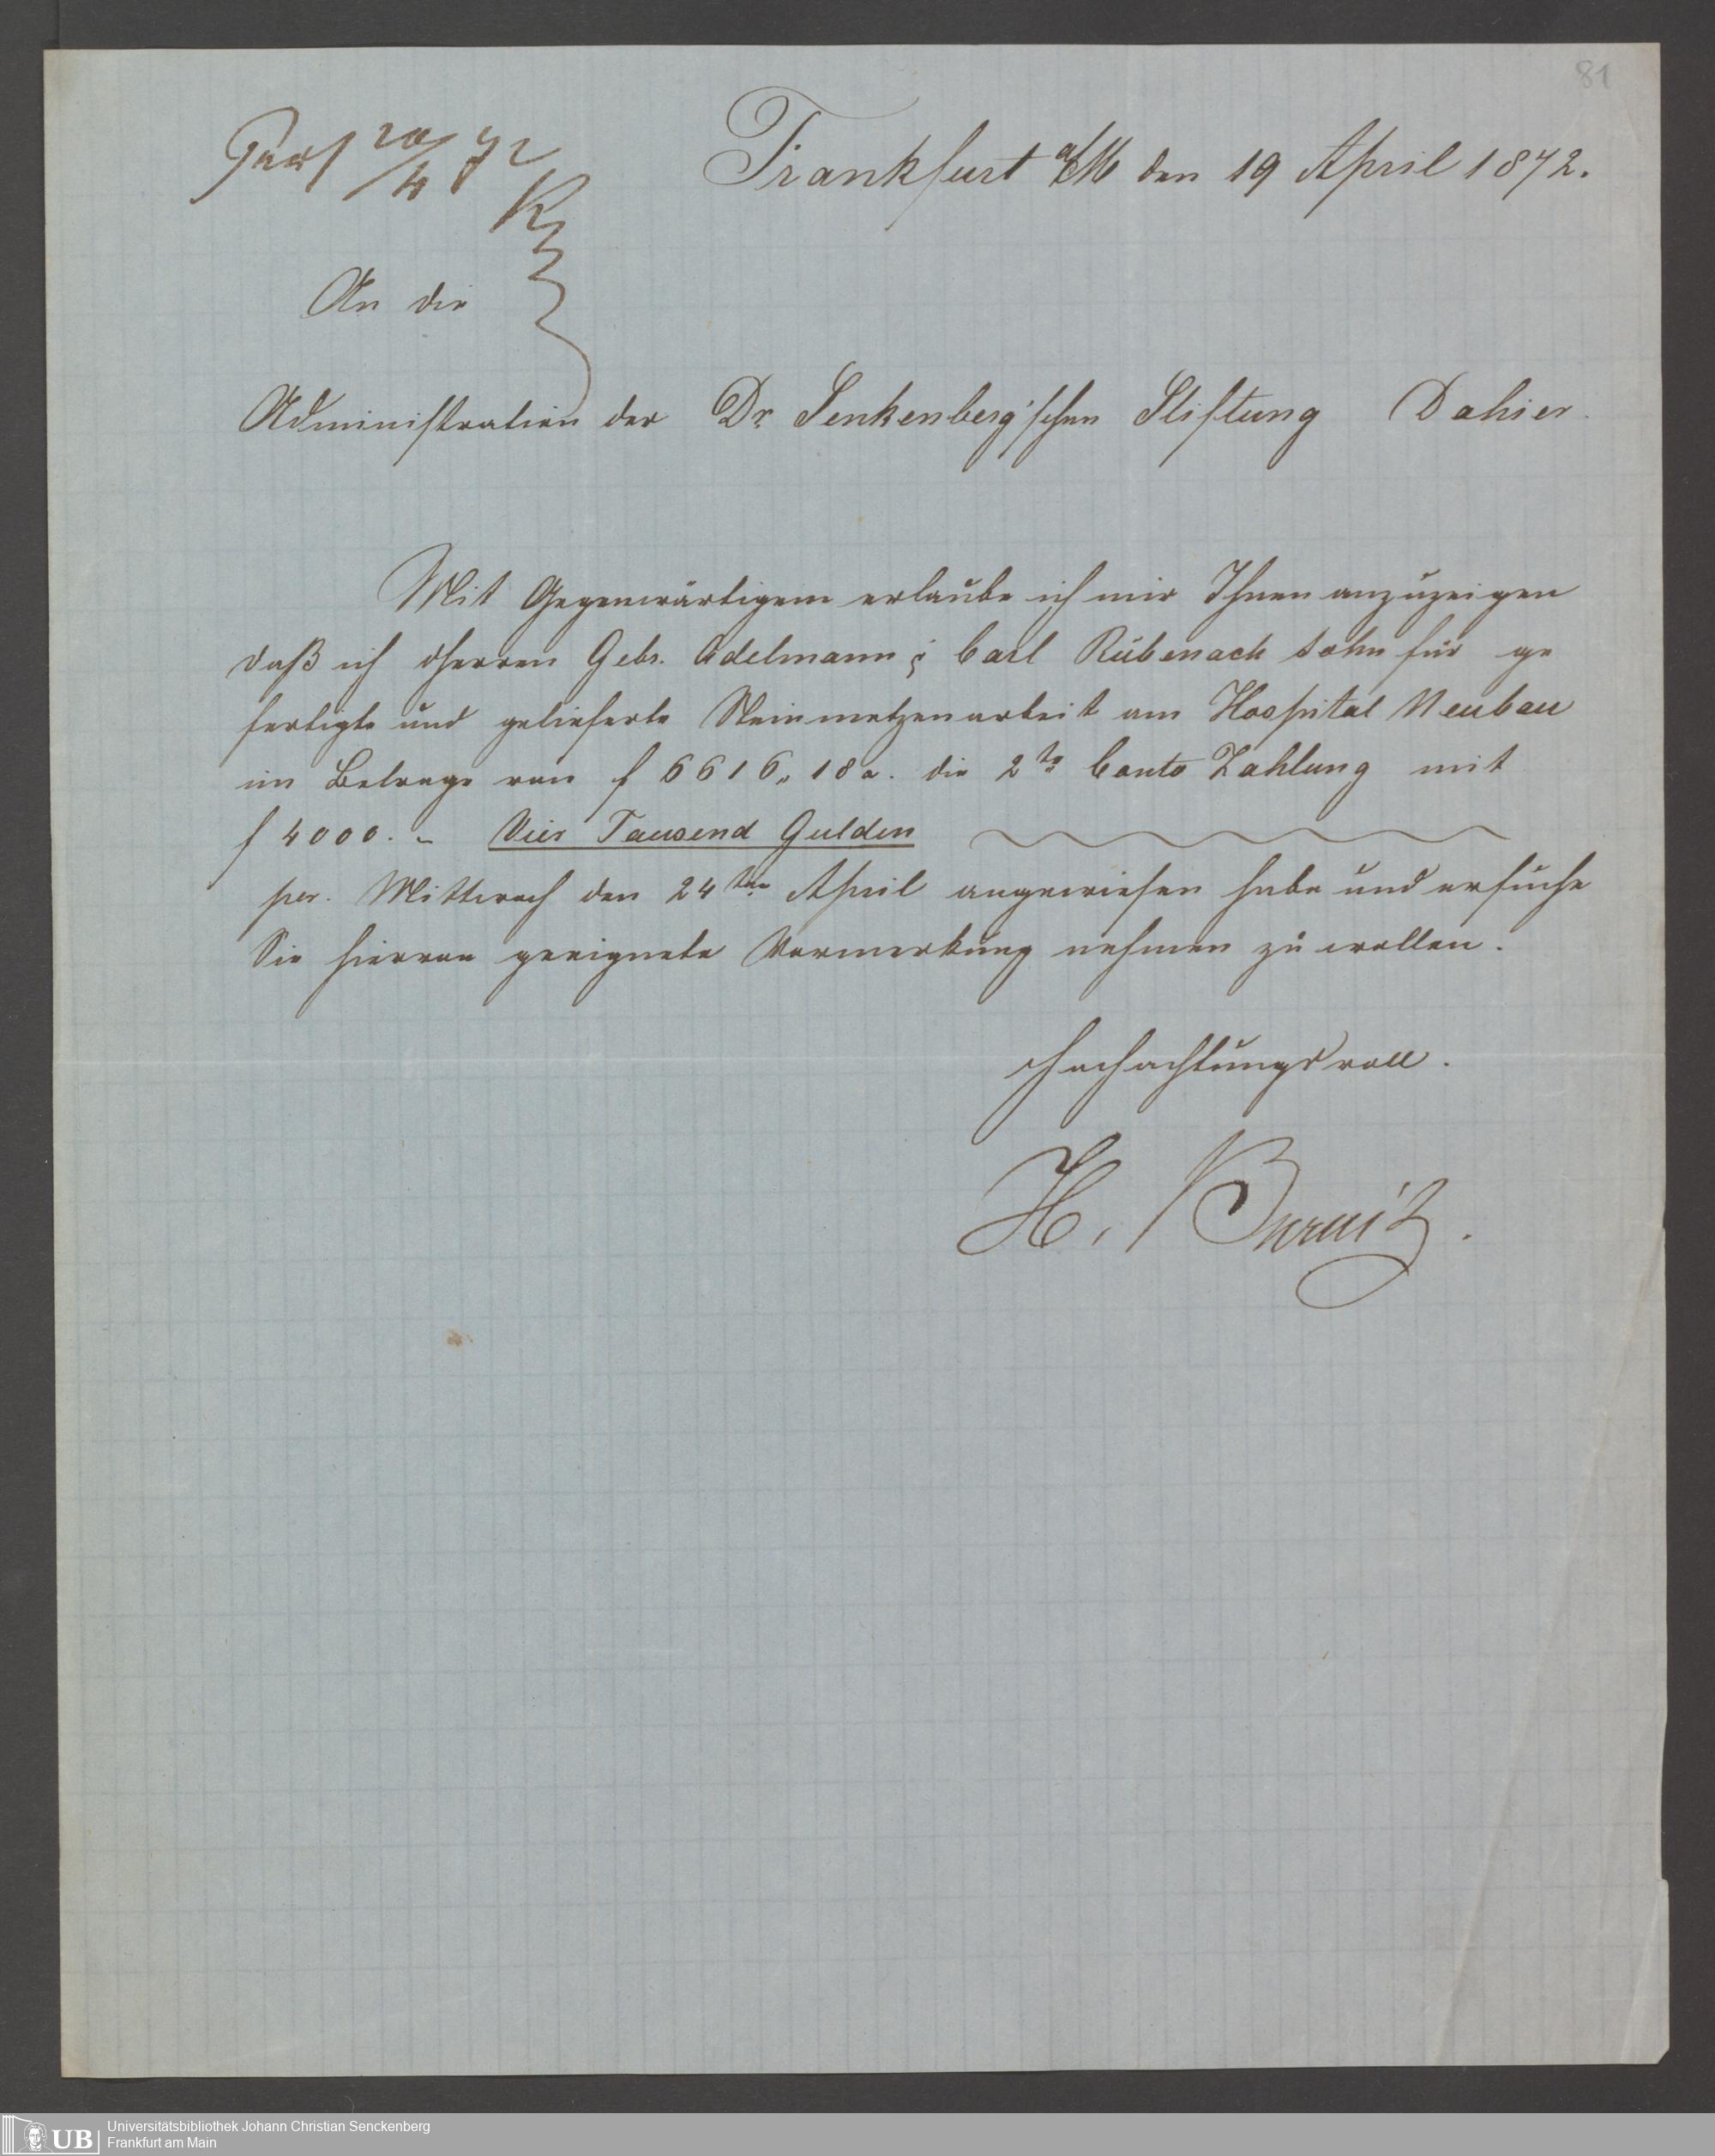 81
20/4 72
Frankfurt a/M den 19 April 1872.
An die
Administration der Dr. Senkenberg'schen Stiftung Dahier.
Mit Gegenwärtigem erlaube ich mir Ihnen anzuzeigen
daß ich Herren Gebr. Adelmann & Carl Rübenach Sohn für ge
fertigte und gelieferte Steinmetzenarbeit am Hospital Neubau
im Betrage von f 6616„ 18 x. die 2te Conto Zahlung mit
f 4000. - Vier Tausend Gulden
per. Mittwoch den 24ten April angewiesen habe und ersuche
Sie hiervon geeignete Vormerkung nehmen zu wollen.
Hochachtungsvoll.
H. Burnitz.
UB
Universitätsbibliothek Johann Christian Senckenberg
Frankfurt am Main